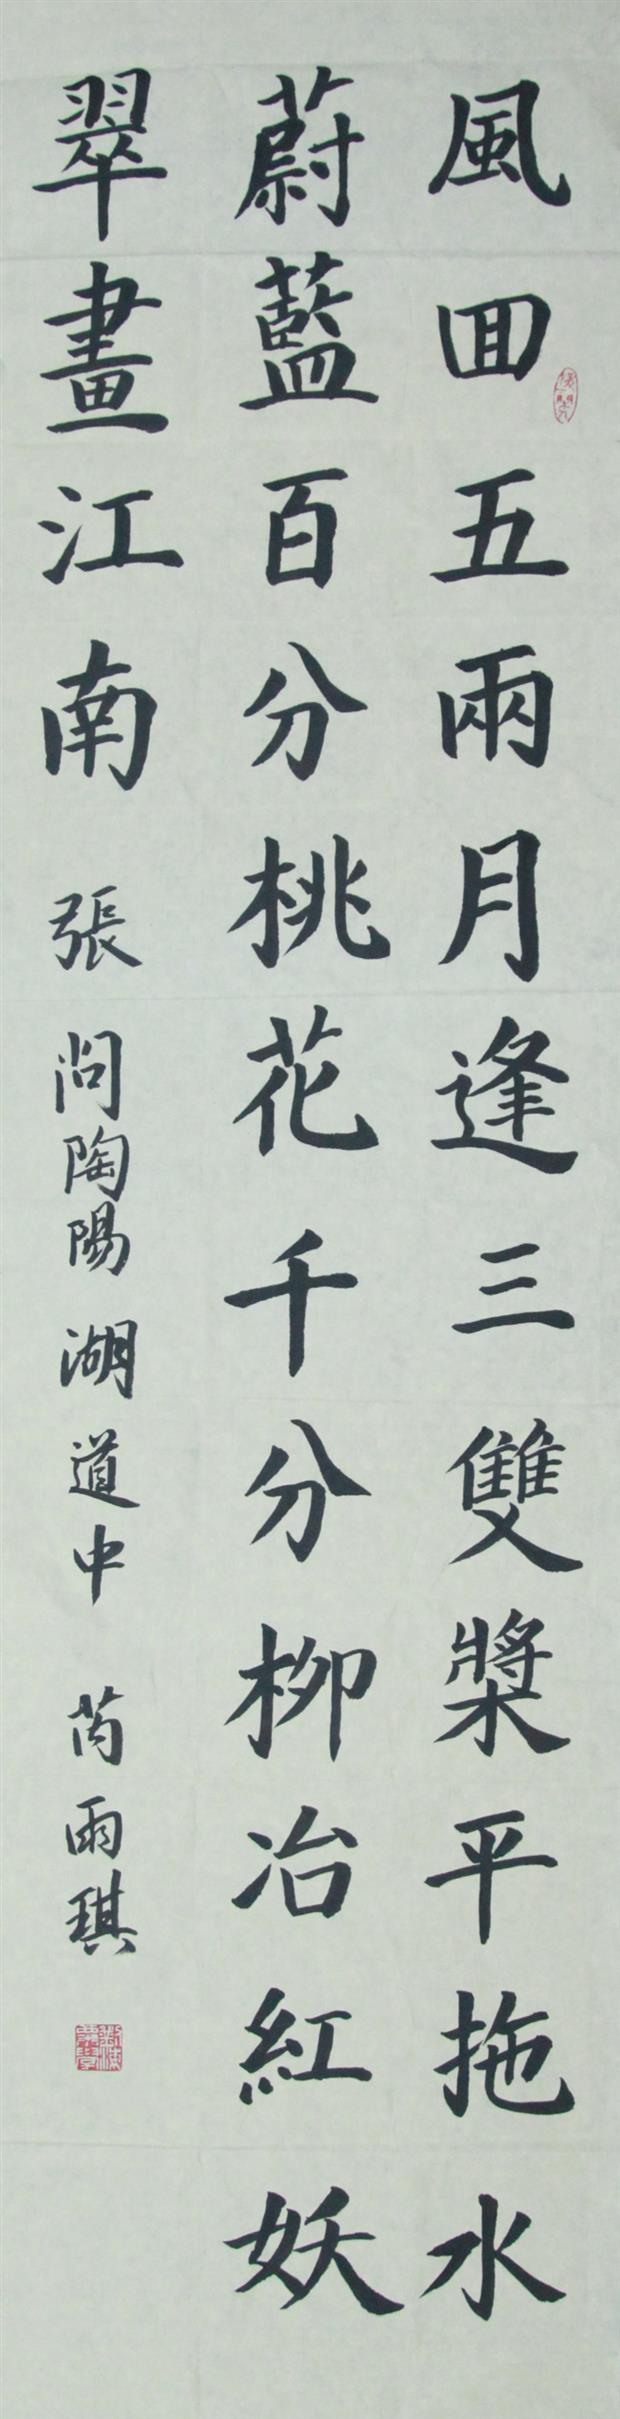 風回五兩月逢三雙槳平拖水
蔚藍百分桃花千分柳冶紅妖
翠畫江南 張問陶陽湖道中 芮雨琪